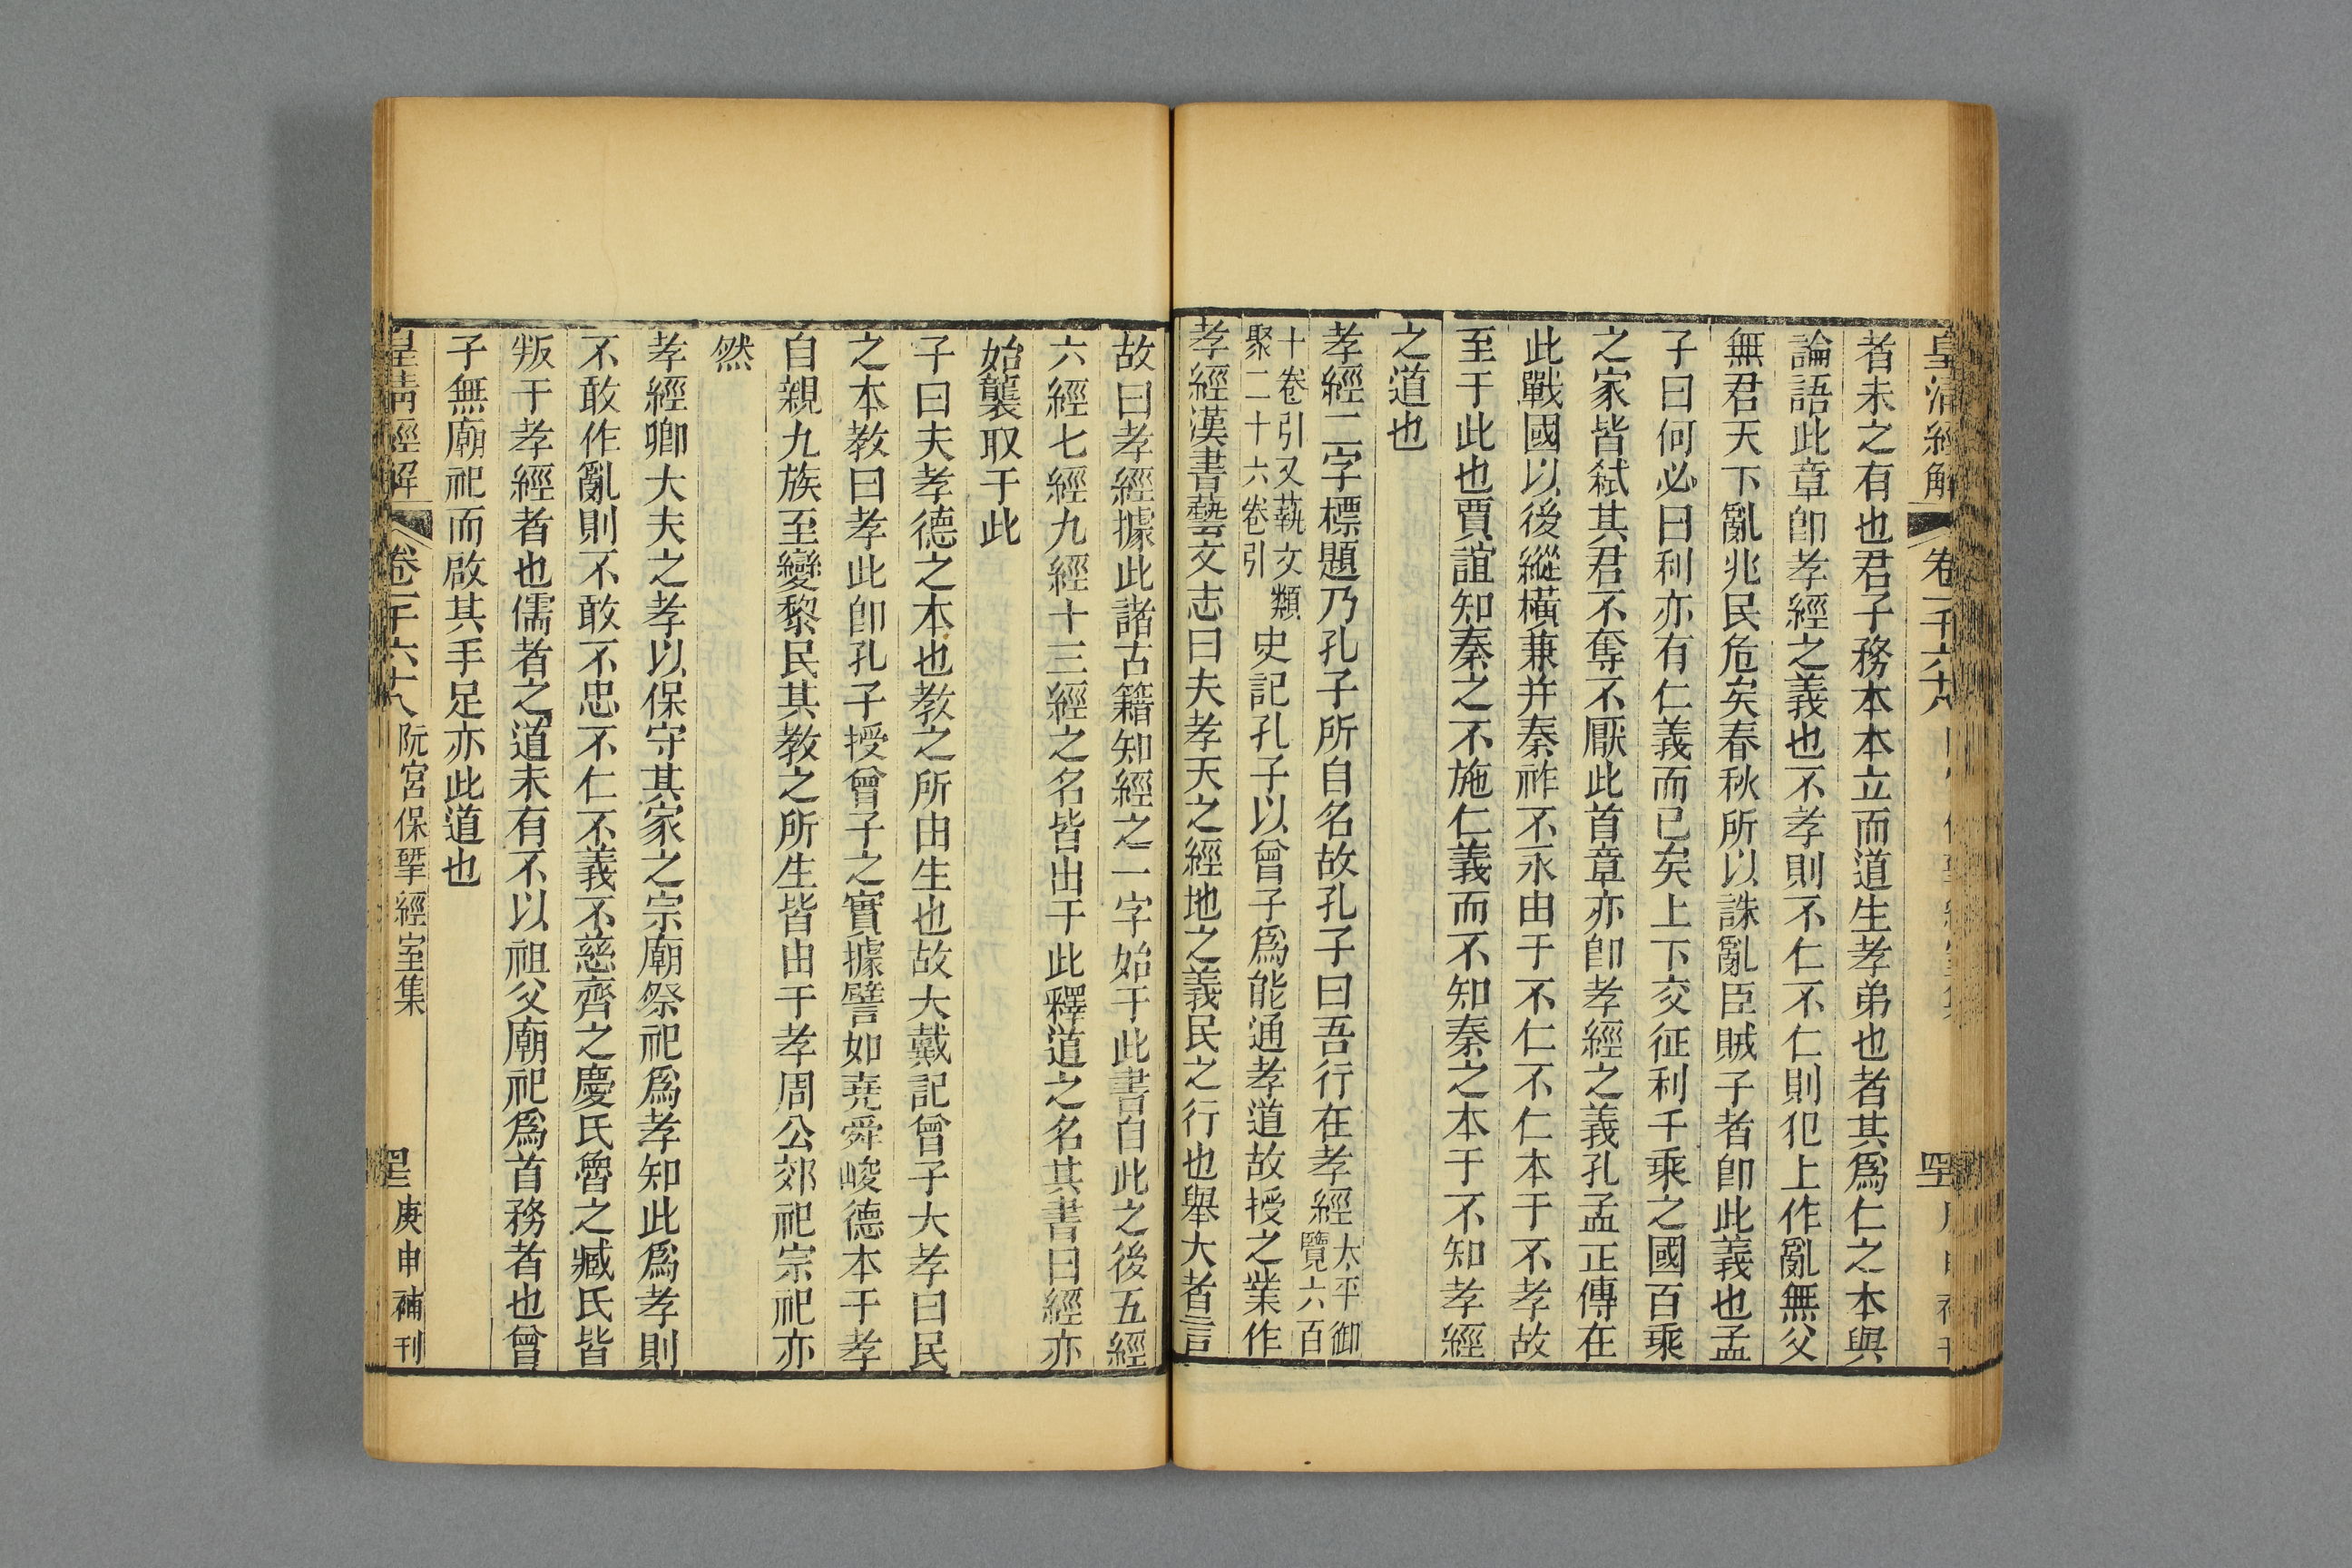 皇清經解 卷一千六十八
者未之有也君子務本本立而道生孝弟也者其爲仁之本與
論語此章卽孝經之義也不孝則不仁不仁則犯上作亂無父
無君天下亂兆民危矣春秋所以誅亂臣賊子者卽此義也孟
子曰何必曰利亦有仁義而已矣上下交征利千乘之國百乘
之家皆弑其君不奪不厭此首章亦卽孝經之義孔孟正傳在
此戰國以後縱橫兼并秦祚不永由于不仁不仁本于不孝故
至于此也賈誼知秦之不施仁義而不知秦之本于不知孝經
之道也
孝經二字標題乃孔子所自名故孔子曰吾行在孝經太平御
覽六百
十卷引又蓺文類
聚二十六卷引史記孔子以曾子爲能通孝道故授之業作
孝經漢書藝文志曰夫孝天之經地之義民之行也舉大者言
故曰孝經據此諸古籍知經之一字始于此書自此之後五經
六經七經九經十三經之名皆出于此釋道之名其書曰經亦
始襲取于此
子曰夫孝德之本也教之所由生也故大戴記曾子大孝曰民
之本教曰孝此卽孔子授曾子之實據譬如堯舜峻德本于孝
自親九族至變黎民其教之所生皆由于孝周公郊祀宗祀亦
然
孝經卿大夫之孝以保守其家之宗廟祭祀爲孝知此爲孝則
不敢作亂則不敢不忠不仁不義不慈齊之慶氏魯之臧氏皆
叛于孝經者也儒者之道未有不以祖父廟祀爲首務者也曾
子無廟祀而啟其手足亦此道也
皇清經解 卷一千六十八 阮宮保揅經室集 庚申補刊